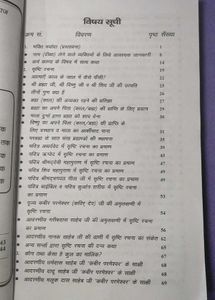 विषय सूची
क्रम सं. विवरण पृष्ठ संख्या
1. भक्ति मर्यादा (प्रस्तावना) 1
2. नाम (दीक्षा) लेने वाले व्यक्तियों के लिये आवश्यक जानकारी
सृष्टि रचना
आत्माएं काल के जाल में कैसे फँसी?
श्री ब्रह्मा जी, श्री विष्णु जी व श्री शिव जी की उत्पत्ति
तीनों गुण क्या हैं
ब्रह्म (काल) की अव्यक्त रहने की प्रतिज्ञा
ब्रह्मा का अपने पिता (काल/ब्रह्म) की प्राप्ति के लिए प्रयत्न
माता दुर्गा द्वारा ब्रह्मा को शाप
विष्णु का अपने पिता (काल/ब्रह्म) की प्राप्ति के
लिए प्रस्थान व माता का आशीर्वाद पाना
परब्रह्म के सात संख ब्रह्मण्डों की स्थापना
पवित्र अथर्ववेद में सृष्टि रचना का प्रमाण
पवित्र ऋग्वेद में सृष्टि रचना का प्रमाण
पवित्र श्रीमद्देवी महापुराण में सृष्टि रचना का प्रमाण
पवित्र शिव महापुराण में सृष्टि रचना का प्रमाण
पवित्र श्रीमद्भगवत गीता जी में सृष्टि रचना का प्रमाण 49
पवित्र बाईबल व पवित्र कुर्आन शरीफ में सृष्टि
रचना का प्रमाण
पूज्य कबीर परमेश्वर (कविर् देव) जी की अमृतवाणी में
सृष्टि रचना
आदरणीय गरीबदास साहेब जी की अमृतवाणी में सृष्टि रचना
का प्रमाण
आदरणीय नानक साहेब जी की वाणी में सृष्टि रचना का संकेत
अन्य सन्तों द्वारा सृष्टि रचना की दन्त कथा
कौन तथा कैसा है कुल का मालिक? 67
आदरणीय धर्मदास साहेब जी कबीर परमेश्वर के साक्षी 68
आदरणीय दादू साहेब जी कबीर परमेश्वर के साक्षी 68
आदरणीय मलूक दास साहेब जी कबीर परमेश्वर के साक्षी 69